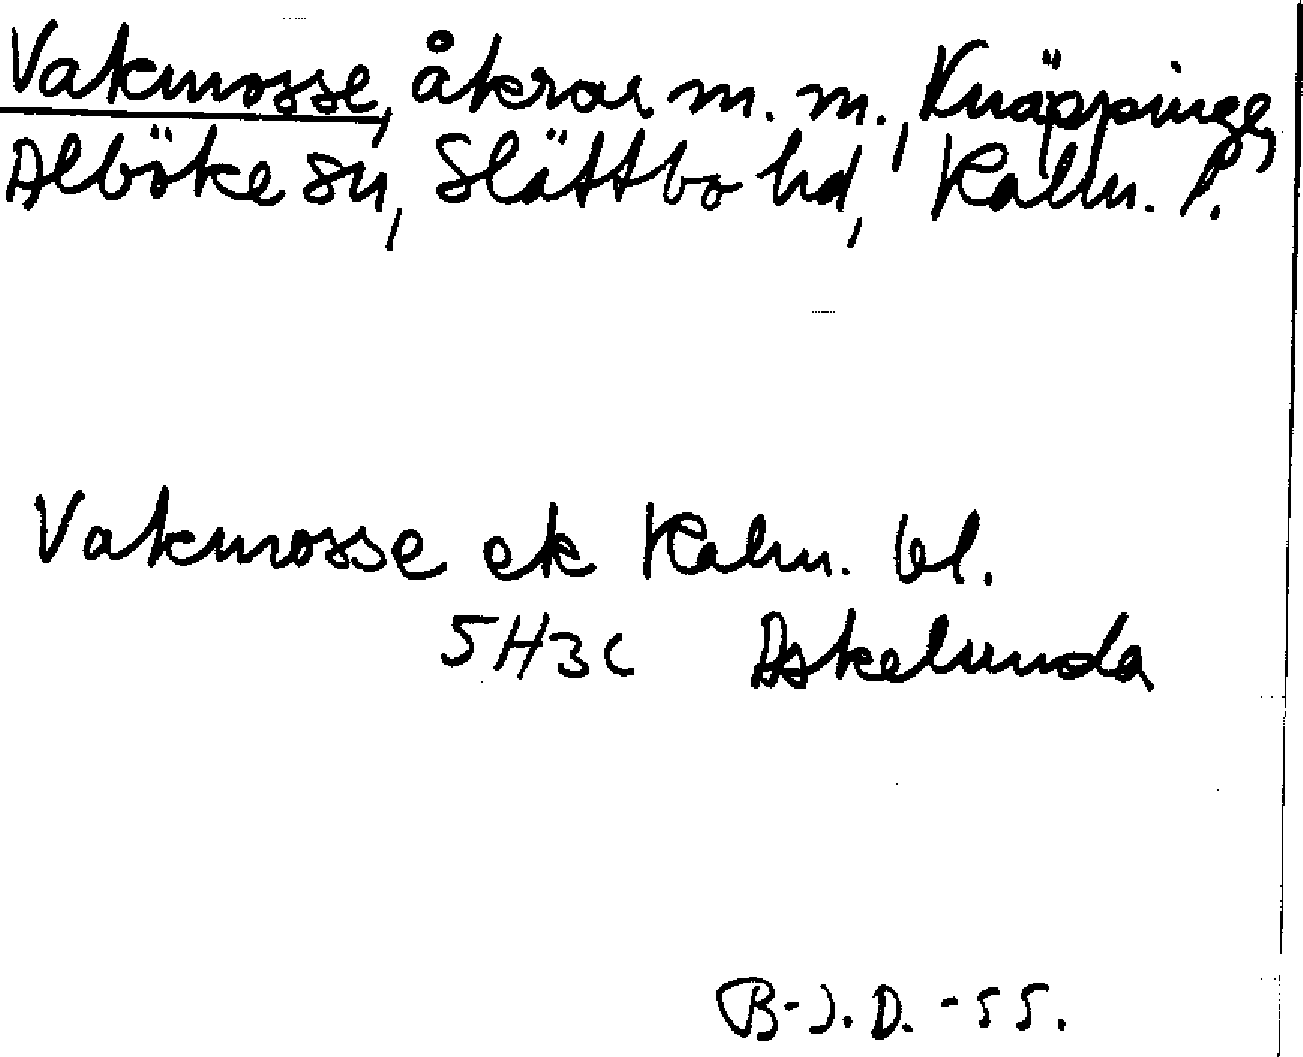 Vakmosse, åkrar m. m., Knäppinge,
Alböke sn, Slättbo hd, Kalm. l.
Vakmosse ek Kalm. bl.
5H3c Askelunda
B-J.D. -55.